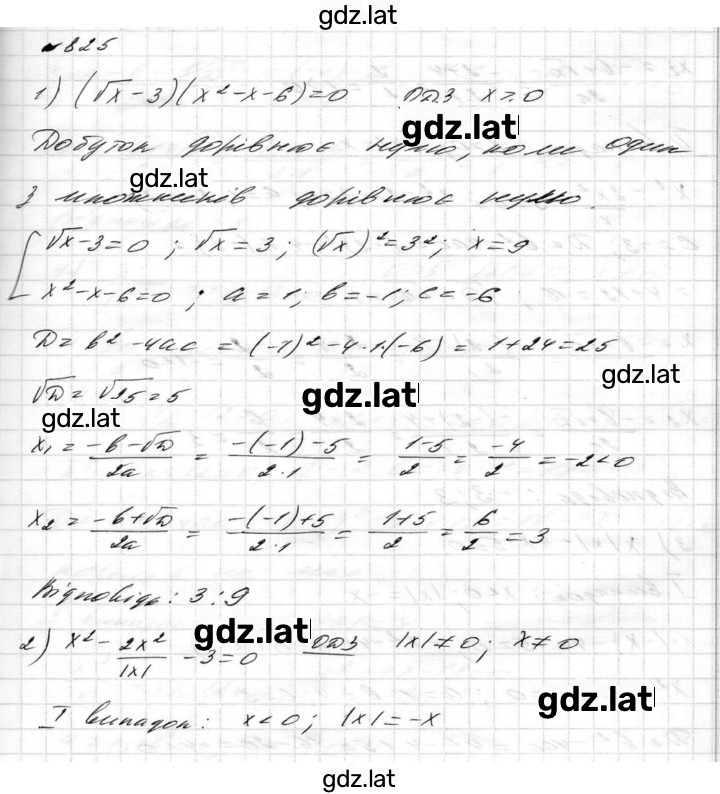 gdz.lat
№ 825
1) (√x - 3)(x² - x - 6) = 0 ОДЗ x ≥ 0
gdz.lat
Добуток дорівнює нулю, коли один
gdz.lat
з множників дорівнює нулю.
[ √x - 3 = 0 ; √x = 3 ; (√x)² = 3² ; x = 9
x² - x - 6 = 0 ; a = 1 ; b = -1 ; c = -6
D = b² - 4ac = (-1)² - 4·1·(-6) = 1 + 24 = 25
gdz.lat
√D = √25 = 5
gdz.lat
gdz.lat
x₁ = (-b - √D)/(2a) = (-(-1) - 5)/(2·1) = (1-5)/2 = -4/2 = -2 < 0
x₂ = (-b + √D)/(2a) = (-(-1) + 5)/(2·1) = (1+5)/2 = 6/2 = 3
Відповідь : 3 ; 9
gdz.lat
2) x² - 2x²/|x| - 3 = 0 ОДЗ |x| ≠ 0 ; x ≠ 0
gdz.lat
I випадок : x < 0 ; |x| = -x
gdz.lat